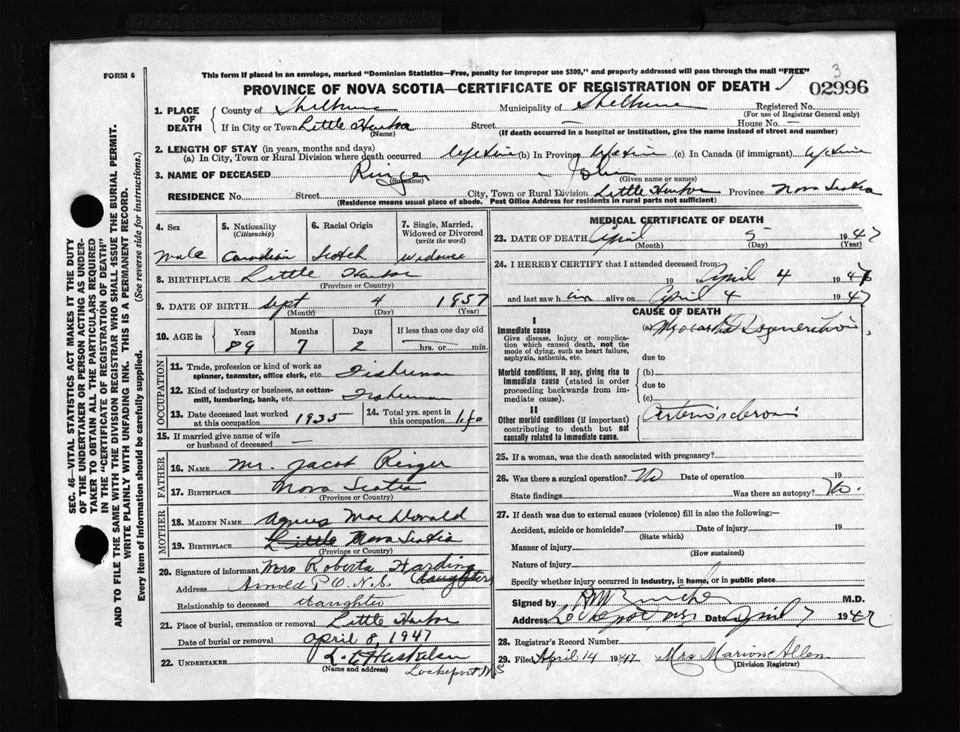 FORM 6
This form if placed in an envelope, marked "Dominion Statistics—Free, penalty for improper use $300," and properly addressed will pass through the mail "FREE"
3
PROVINCE OF NOVA SCOTIA—CERTIFICATE OF REGISTRATION OF DEATH
02996
SEC. 46—VITAL STATISTICS ACT MAKES IT THE DUTY
OF THE UNDERTAKER OR PERSON ACTING AS UNDER-
TAKER TO OBTAIN ALL THE PARTICULARS REQUIRED
IN THE "CERTIFICATE OF REGISTRATION OF DEATH"
AND TO FILE THE SAME WITH THE DIVISION REGISTRAR WHO SHALL ISSUE THE BURIAL PERMIT.
WRITE PLAINLY WITH UNFADING INK. THIS IS A PERMANENT RECORD.
Every item of information should be carefully supplied. (See reverse side for instructions.)
1. PLACE OF DEATH
County of Shelburne Municipality of Shelburne Registered No.
(For use of Registrar General only)
If in City or Town Little Harbor Street — House No. —
(Name) (If death occurred in a hospital or institution, give the name instead of street and number)
2. LENGTH OF STAY (in years, months and days)
(a) In City, Town or Rural Division where death occurred life time (b) In Province life time (c) In Canada (if immigrant) life time
3. NAME OF DECEASED Ringer John
(Surname) (Given name or names)
RESIDENCE No. Street City, Town or Rural Division Little Harbor Province Nova Scotia
(Residence means usual place of abode. Post Office Address for residents in rural parts not sufficient)
4. Sex
Male
5. Nationality
(Citizenship)
Canadian
6. Racial Origin
Scotch
7. Single, Married,
Widowed or Divorced
(write the word)
Widower
8. BIRTHPLACE Little Harbor
(Province or Country)
9. DATE OF BIRTH Sept 4 1857
(Month) (Day) (Year)
10. AGE in Years Months Days If less than one day old
89 7 2 hrs. or min.
OCCUPATION
11. Trade, profession or kind of work as
spinner, teamster, office clerk, etc. Fisherman
12. Kind of industry or business, as cotton-
mill, lumbering, bank, etc. Fisherman
13. Date deceased last worked
at this occupation 1935
14. Total yrs. spent in
this occupation life
15. If married give name of wife
or husband of deceased —
FATHER
16. NAME Mr. Jacob Ringer
17. BIRTHPLACE Nova Scotia
(Province or Country)
MOTHER
18. MAIDEN NAME Agnes MacDonald
19. BIRTHPLACE Little Nova Scotia
(Province or Country)
20. Signature of informant Mrs Roberta Harding
daughter
Address Arnold P.O. N.S.
Relationship to deceased daughter
21. Place of burial, cremation or removal Little Harbor
Date of burial or removal April 8, 1947
22. UNDERTAKER
(Name and address) Lockeport N.S
MEDICAL CERTIFICATE OF DEATH
23. DATE OF DEATH April 5 1947
(Month) (Day) (Year)
24. I HEREBY CERTIFY that I attended deceased from:
19 to April 4 1947
and last saw him alive on April 4 1947
CAUSE OF DEATH
I
Immediate cause
Give disease, injury or complica-
tion which caused death, not the
mode of dying, such as heart failure,
asphyxia, asthenia, etc.
(a) Myocardial Degeneration
due to
Morbid conditions, if any, giving rise to
immediate cause (stated in order
proceeding backwards from im-
mediate cause).
(b)
due to
(c)
II
Other morbid conditions (if important)
contributing to death but not
causally related to immediate cause.
Arteriosclerosis
25. If a woman, was the death associated with pregnancy?
26. Was there a surgical operation? No Date of operation 19
State findings Was there an autopsy? No.
27. If death was due to external causes (violence) fill in also the following:—
Accident, suicide or homicide? Date of injury 19
(State which)
Manner of injury
(How sustained)
Nature of injury
Specify whether injury occurred in industry, in home, or in public place
Signed by M.D.
Address Lockeport, N.S. Date April 7 1947
28. Registrar's Record Number
29. Filed April 14 1947 Mrs Marion Allen
(Division Registrar)